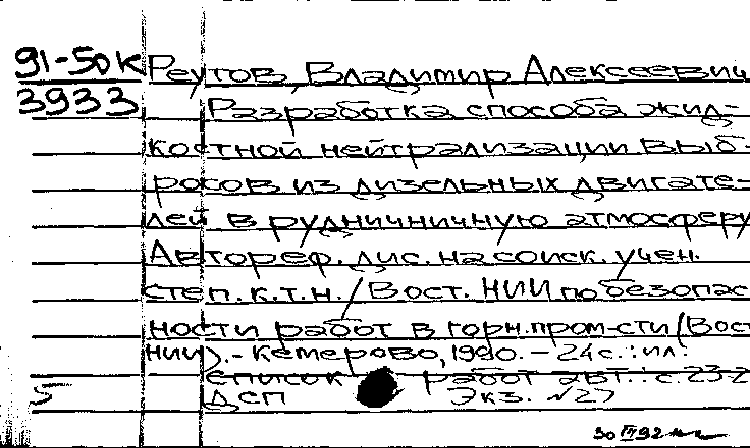 91-50к Реутов, Владимир Алексеевич
3933 Разработка способа жид-
костной нейтрализации выб-
росов из дизельных двигате-
лей в рудничничную атмосферу
Автореф. дис. на соиск. учен.
степ. к.т.н. / Вост. НИИ по безопас
ности работ в горн. пром-сти (Вост
НИИ). - Кемерово, 1990. - 24 с.: ил.
5 список работ авт.: с. 23-2
ДСП Экз. №27
30 III 92